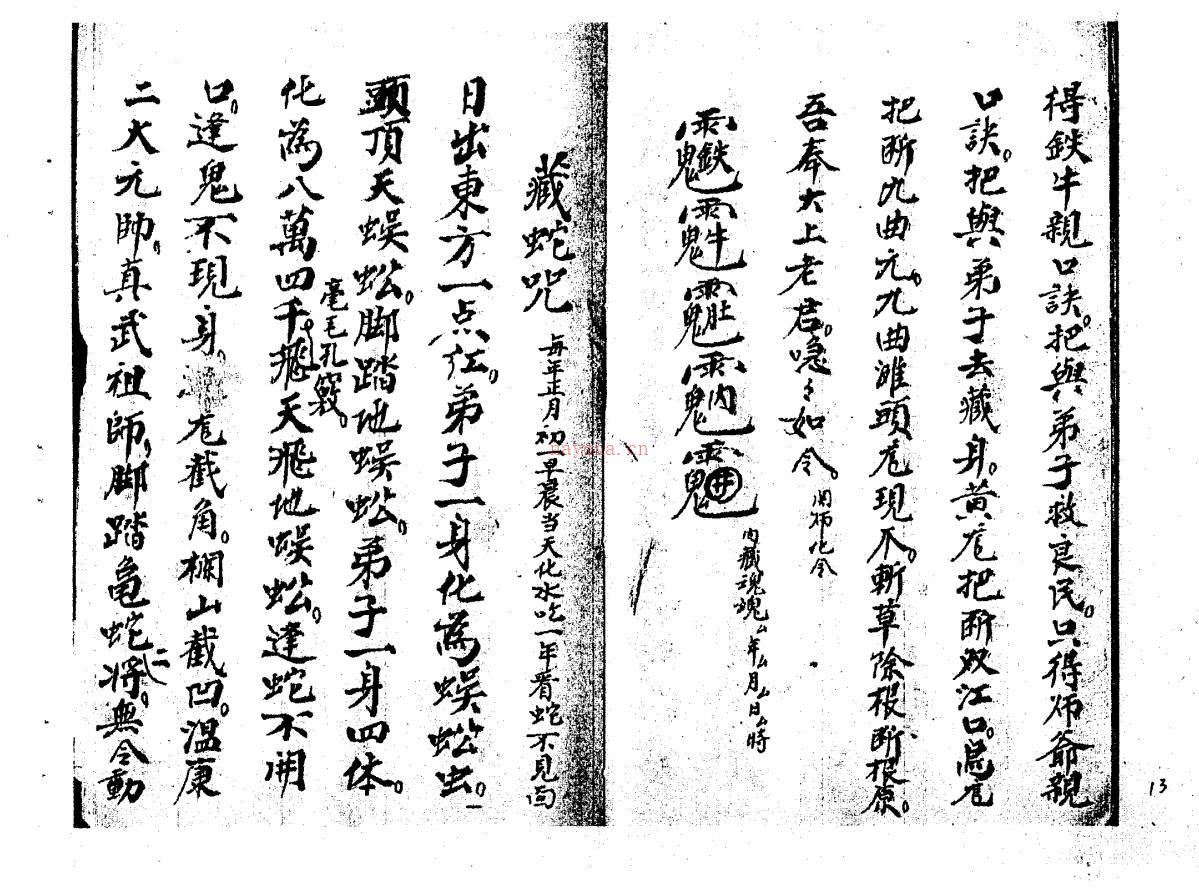 得鉄牛親口訣。把與弟子救良民。只得师爺親
口訣。把與弟子去藏身。黄𢀖把断双江口。
把断九曲 九曲滩頭 現爪。斬草除根断根原。
吾奉太上老君。急々如令。
鉄牛肚内井
内藏魂魄厶年厶月厶日厶時
藏蛇咒
每年正月初一早晨当天化水吃一年看蛇不見面
日出東方一点红。弟子一身化為蜈蚣虫。一
頭頂天蜈蚣。脚踏地蜈蚣。弟子一身四体。
毫毛孔竅。
化為八萬四千飛天飛地蜈蚣。逢蛇不開
口。逢鬼不現身。 截角。欄山截凹。温康
二大元帥。真武祖師。脚踏龟蛇二将。無令動
13